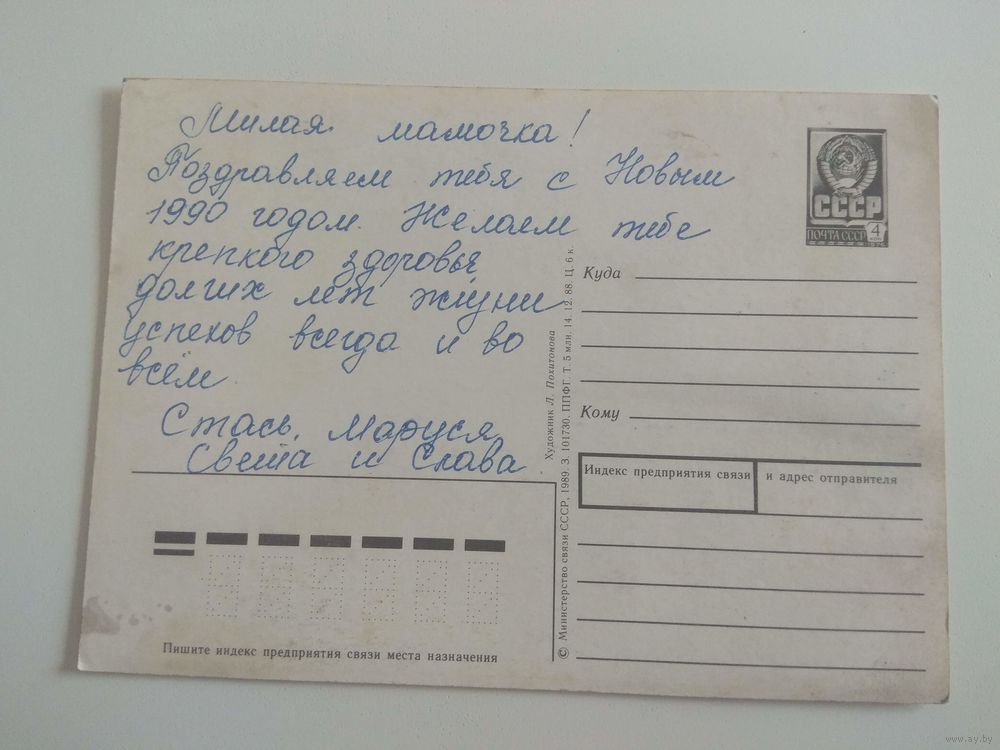 Милая мамочка!
Поздравляем тебя с Новым
1990 годом. Желаем тебе
крепкого здоровья
долгих лет жизни
успехов всегда и во
всём.
Стась, Маруся
Света и Слава
Пишите индекс предприятия связи места назначения
Художник Л. Похитонова
© Министерство связи СССР, 1989. З. 101730. ППФГ. Т. 5 млн. 14. 12. 88. Ц. 6 к.
СССР
ПОЧТА СССР 4
КОП
Куда
Кому
Индекс предприятия связи и адрес отправителя
www.ay.by